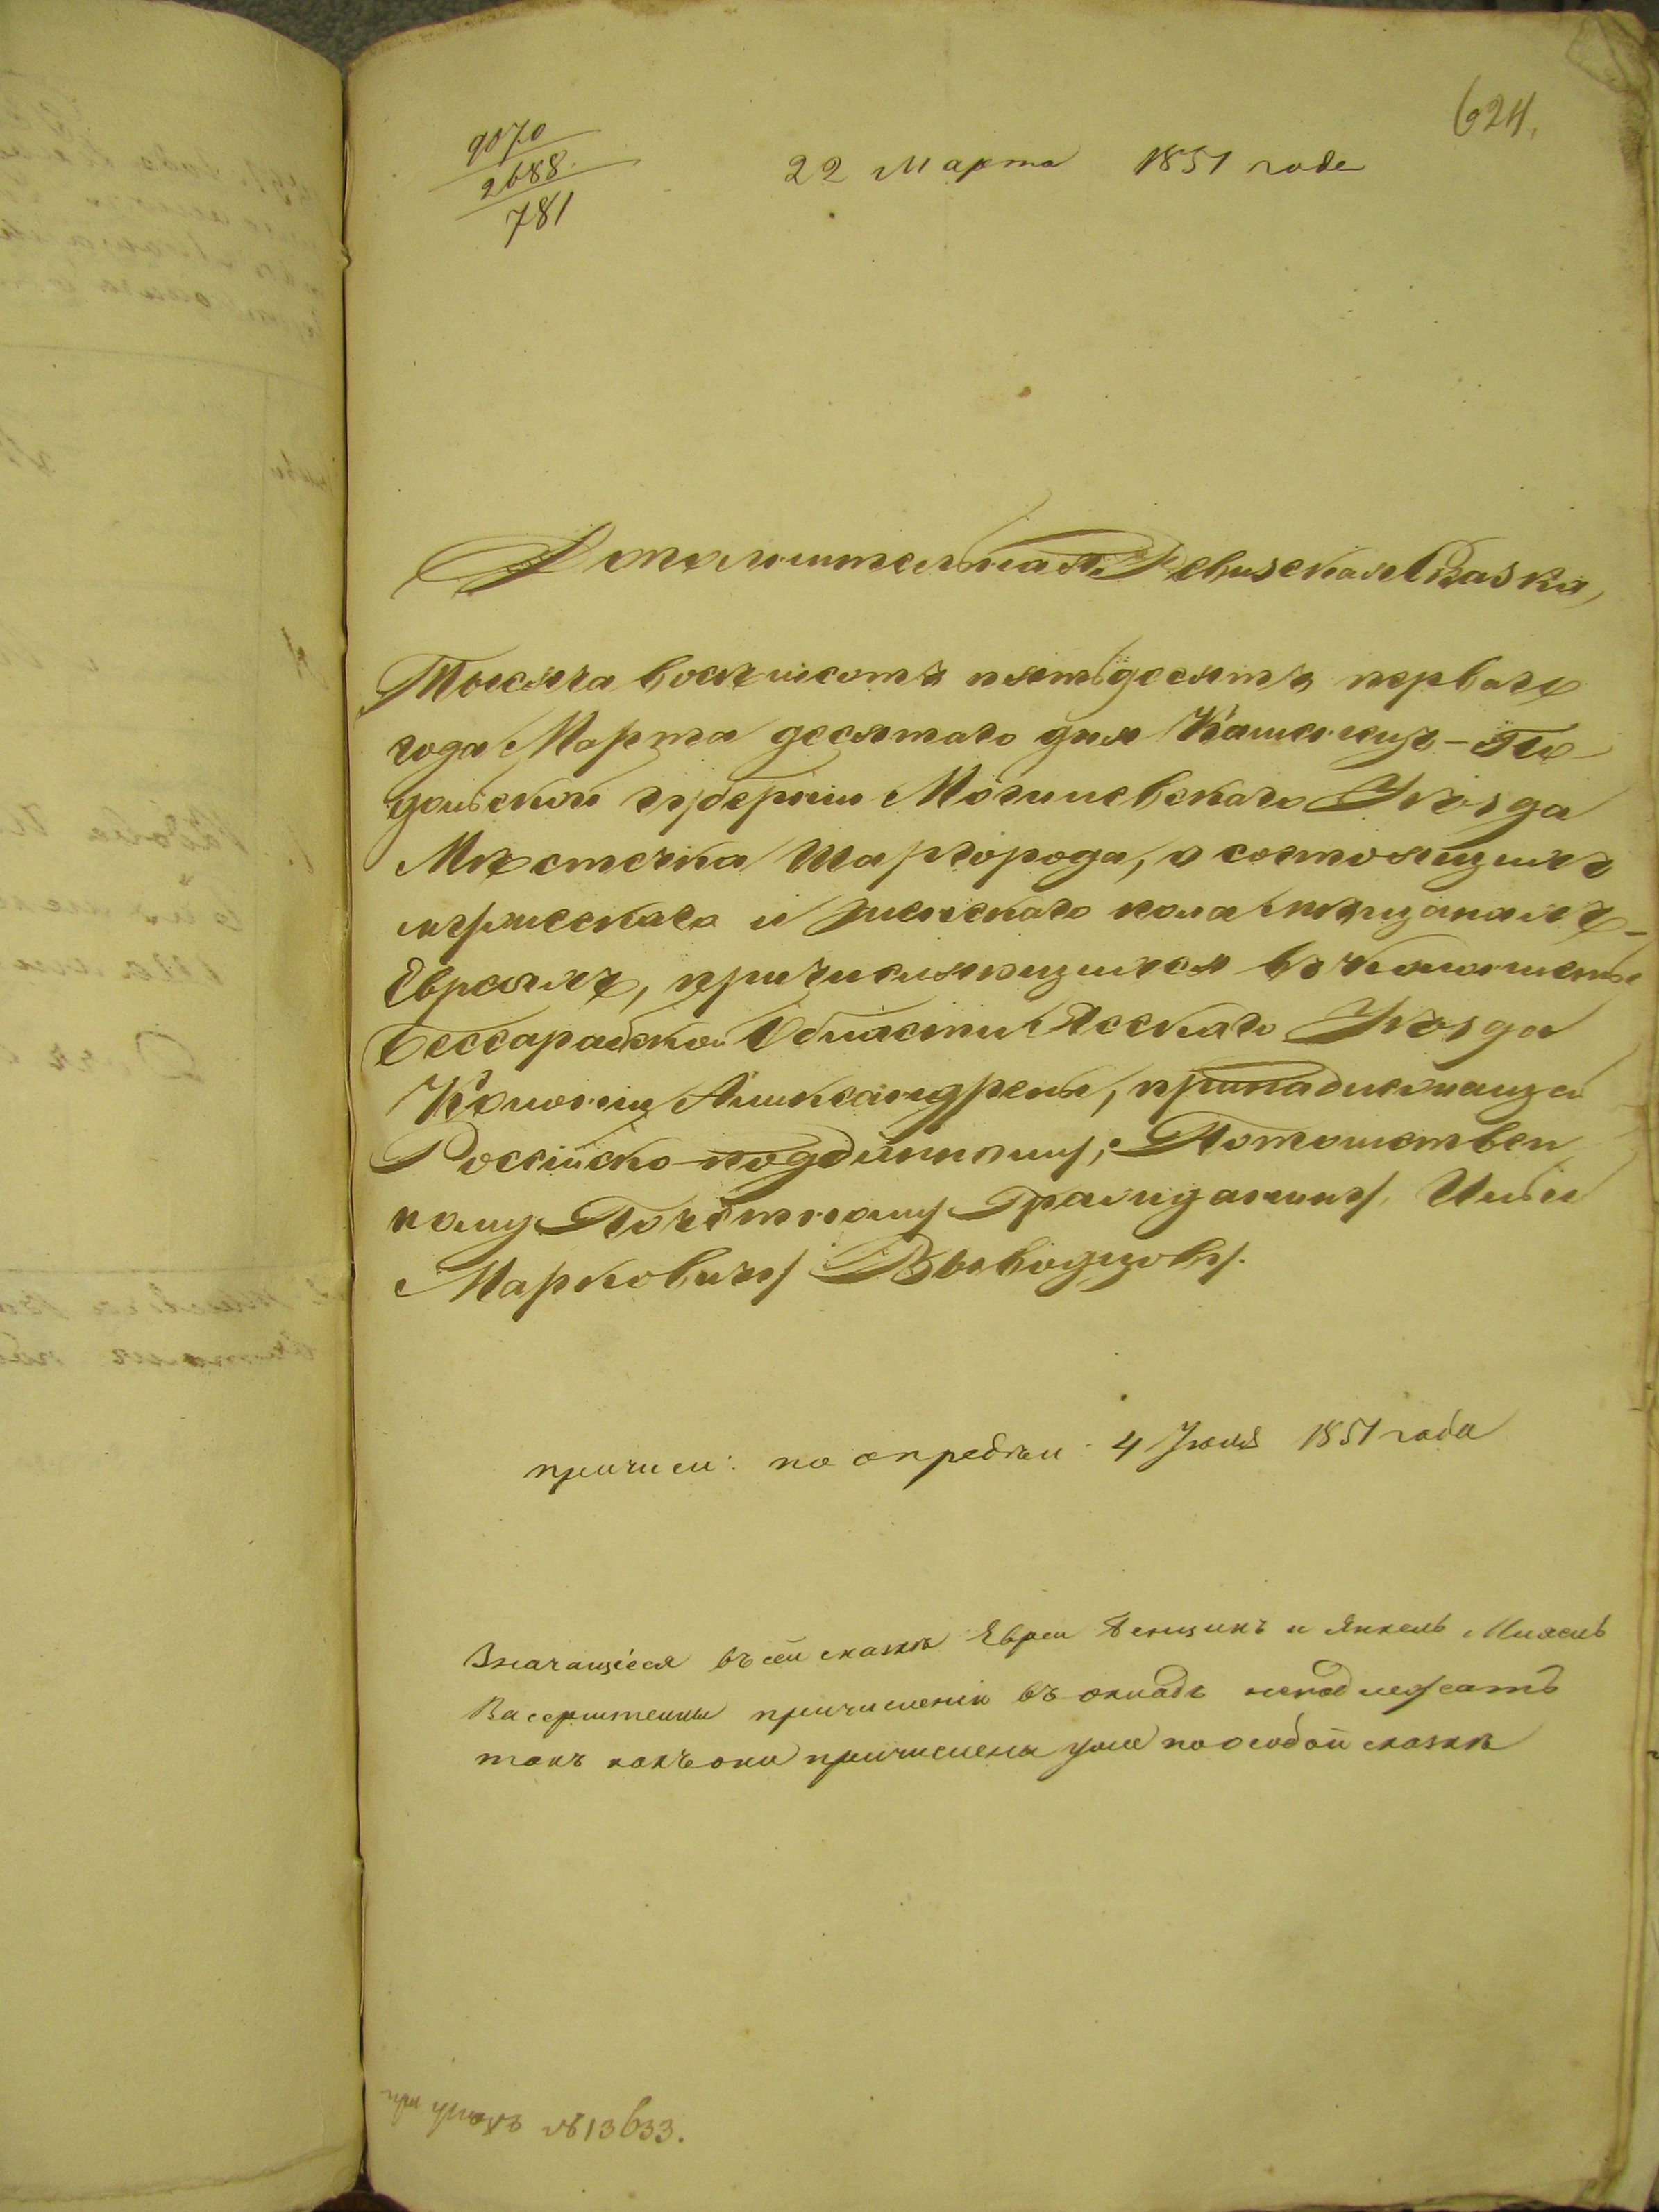 624.
9070
2688.
781
22 Марта 1851 года
Дополнительная Ревизская Сказка,
Тысяча восемьсотъ пятьдесятъ перваго
года Марта десятаго дня Каменецъ-По
дольской губерніи Могилевскаго Уѣзда
Мѣстечка Шаргорода, о состоящихъ
мужескаго и женскаго пола мѣщанахъ-
Евреяхъ, причисляющихся въ колонисты
Бессарабской Области Ясскаго Уѣзда
Колоніи Александрены, принадлежащей
Россійско-подданному, Потомствен
ному Почетному Гражданину, Илье
Марковичу Выводцову.
причисл: по опредѣл: 4 Іюня 1851 года
Значащіеся въ сей сказкѣ Евреи и Янкель
причисленію въ окладъ неподлежатъ
такъ какъ они причислены уже по особой сказкѣ
при указѣ №13633.